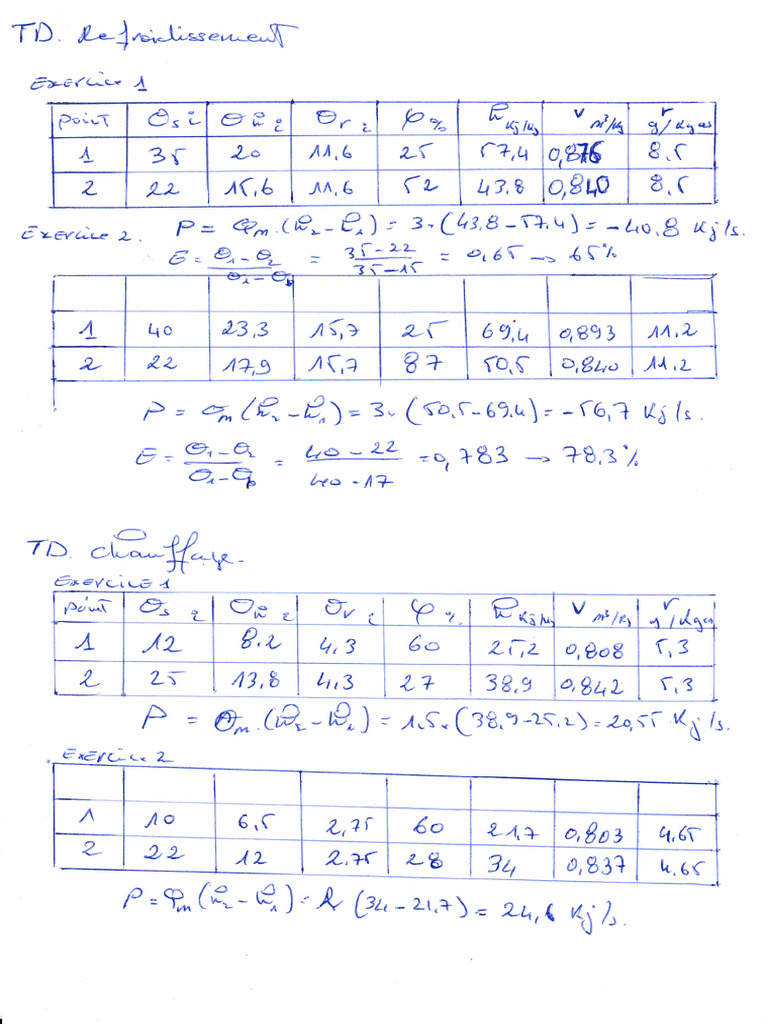 TD. Refroidissement
Exercice 1
point θs °C θh °C θr °C φ % h Kj/Kg v m³/Kg r g/Kgas
1 35 20 11,6 25 57,4 0,876 8.5
2 22 15,6 11,6 52 43.8 0,840 8,5
Exercice 2. P = qm.(h2-h1) = 3.(43.8-57.4) = -40,8 Kj/s.
E = θ1-θ2 / θ1-θb = 35-22 / 35-15 = 0,65 → 65%
1 40 23,3 15,7 25 69,4 0,893 11.2
2 22 17,9 15,7 87 50,5 0,840 11.2
P = qm(h2-h1) = 3.(50.5-69.4) = -56,7 Kj/s.
E = θ1-θ2 / θ1-θb = 40-22 / 40-17 = 0,783 → 78.3%
TD. Chauffage.
Exercice 1
point θs °C θh °C θr °C φ % h Kj/Kg v m³/Kg r g/Kgas
1 12 8.2 4.3 60 25,2 0,808 5,3
2 25 13,8 4.3 27 38,9 0,842 5,3
P = qm.(h2-h1) = 1.5.(38,9-25.2) = 20,55 Kj/s.
Exercice 2
1 10 6,5 2,75 60 21,7 0,803 4,65
2 22 12 2.75 28 34 0,837 4.65
P = qm(h2-h1) = (34-21,7) = 24,6 Kj/s.